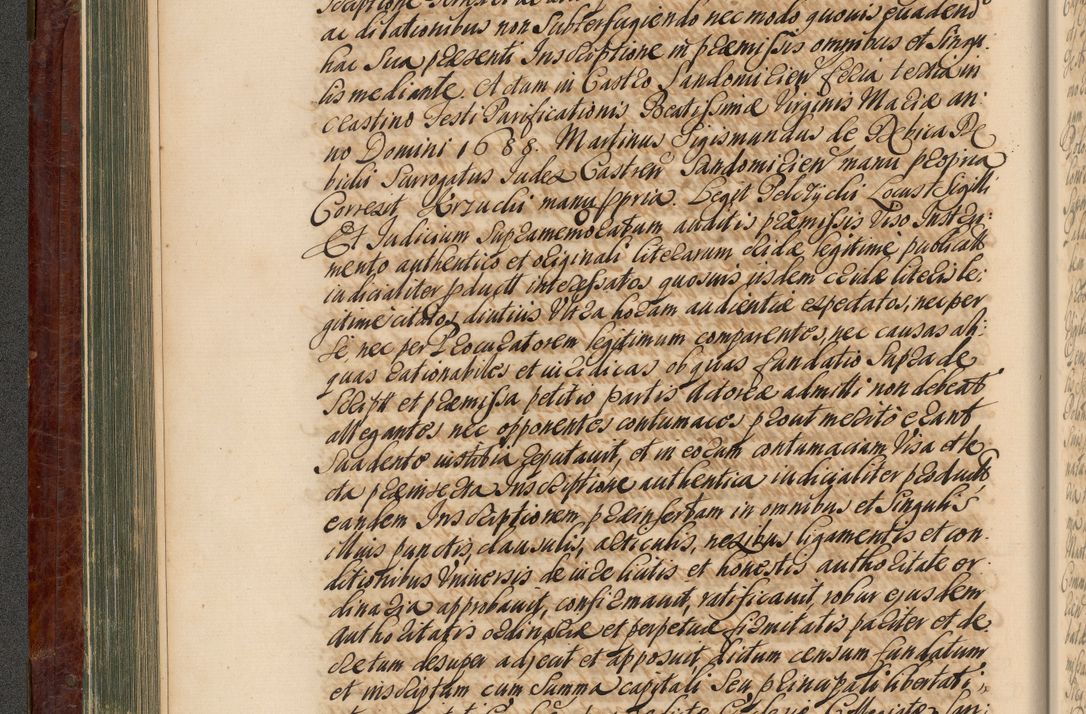 ac dilationibus non subterfugiendo nec modo quovis evadend
hac sua præsenti Inscriptione in præmissis omnibus et Singu-
lis mediante. Actum in Castro Sandomirien feria tertia in
crastino Festi Purificationis Beatissimæ Virginis Mariæ an-
no Domini 1688. Martinus Sigismundus de Dębica De
bicki Surrogatus Judex Castren Sandomirien manu propria
Correxit Krzucki manu ppria. Legit Pełczycki Locus Sigilli
Et Judicium Supramemoratum auditis præmissis Viso Instru-
mento authentico et originali literarum cridæ legitime publicatt
iudicialiter productt interessatos quosvis iisdem cridæ literis le-
gitime citatos, diutius Ultra horam audientiæ expectatos, nec per
se, nec per Procuratorem legitimum comparentes, nec causas ali-
quas rationabiles et iuridicas ob quas fundatio Supra de
Scriptt et præmissa petitio partis Actoreæ admitti non debeat
allegantes nec opponentes contumaces prout merito erant
Suadente iustitia reputavit, et in eorum contumaciam Visa et le
cta præinserta Inscriptione authentica iudicialiter productt
eandem Inscriptionem præinsertam in omnibus et Singulis
illius punctis, clausulis, articulis, nexibus ligamentis et con-
ditionibus Universis de iure licitis et honestis authoritate or-
dinaria approbavit, confirmavit, ratificavit, robur ejusdem
authoritatis ordinariæ et perpetuæ firmitatis pariter et de
cretum desuper adjecit et apposuit, dictum censum fundatum
et inscriptum cum Summa capitali Seu principali libertati